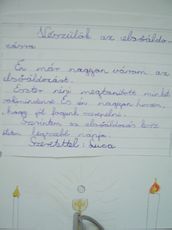 Készülök az elsőáldo-
zásra
Én már nagyon várom az
elsőáldozást.
Eszter néni megtanított minket
És én nagyon
hogy jól fogunk szerepelni.
Szerintem az elsőáldozás lesz
életem legszebb napja.
Szeretettel: Luca